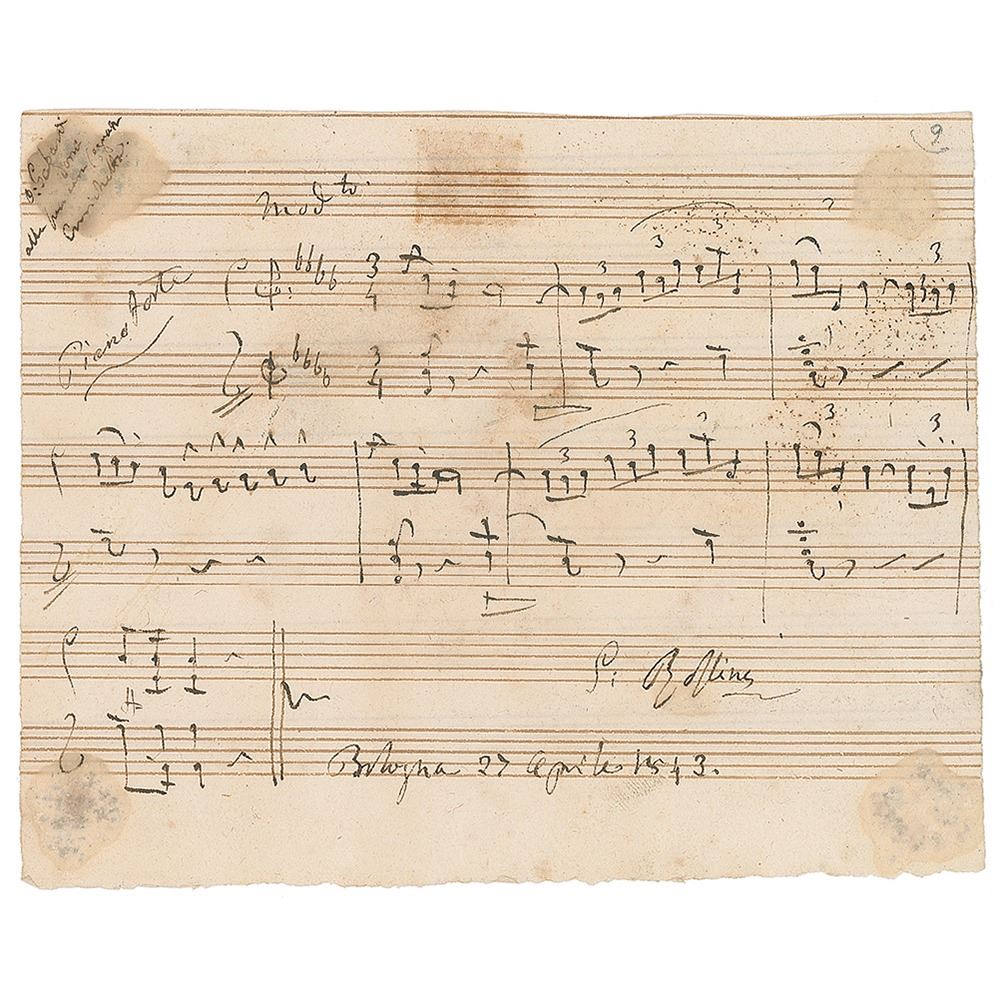 9
Mod.to
Piano Forte
3
4
3
3
3
3
3
4
3
3
3
3
G: Rossini
Bologna 27 Aprile 1843.